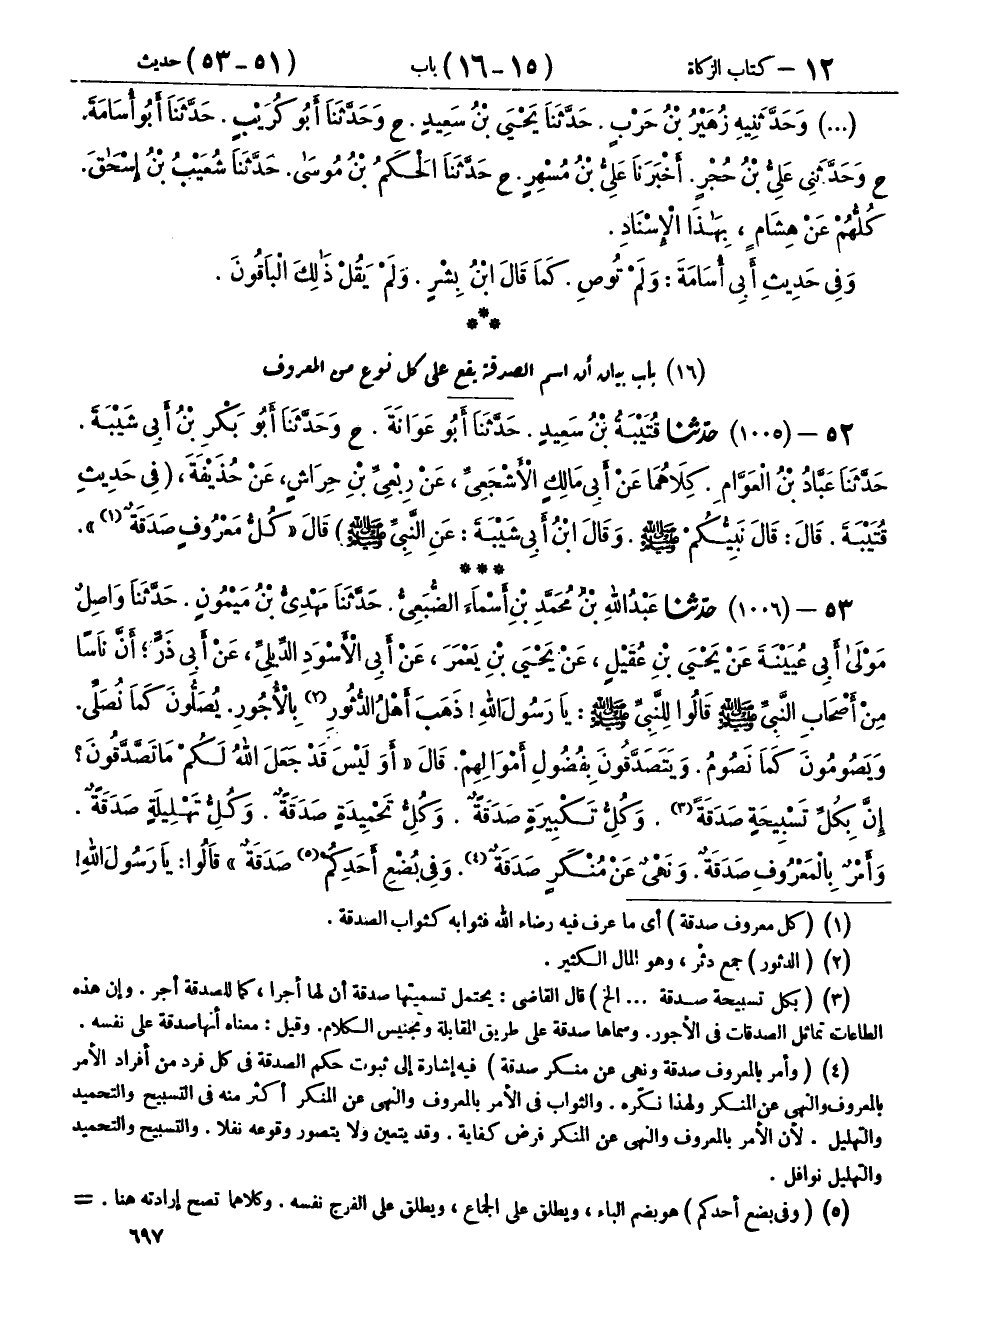 ١٢ – كتاب الزكاة (١٥-١٦) باب (٥١-٥٣) حديث
(...) وَحَدَّثَنِيهِ زُهَيْرُ بْنُ حَرْبٍ. حَدَّثَنَا يَحْيَىٰ بْنُ سَعِيدٍ. ح وَحَدَّثَنَا أَبُو كُرَيْبٍ. حَدَّثَنَا أَبُو أُسَامَةَ.
ح وَحَدَّثَنِي عَلِيُّ بْنُ حُجْرٍ. أَخْبَرَنَا عَلِيُّ بْنُ مُسْهِرٍ. ح حَدَّثَنَا الْحَكَمُ بْنُ مُوسَىٰ. حَدَّثَنَا شُعَيْبُ بْنُ إِسْحَٰقَ.
كُلُّهُمْ عَنْ هِشَامٍ، بِهَٰذَا الْإِسْنَادِ.
وَفِي حَدِيثِ أَبِي أُسَامَةَ: وَلَمْ تُوصِ. كَمَا قَالَ ابْنُ بِشْرٍ. وَلَمْ يَقُلْ ذَٰلِكَ الْبَاقُونَ.
***
(١٦) باب بيان أن اسم الصدقة يقع على كل نوع من المعروف
٥٢ – (١٠٠٥) حدثنا قُتَيْبَةُ بْنُ سَعِيدٍ. حَدَّثَنَا أَبُو عَوَانَةَ. ح وَحَدَّثَنَا أَبُو بَكْرِ بْنُ أَبِي شَيْبَةَ.
حَدَّثَنَا عَبَّادُ بْنُ الْعَوَّامِ. كِلَاهُمَا عَنْ أَبِي مَالِكٍ الْأَشْجَعِيِّ، عَنْ رِبْعِيِّ بْنِ حِرَاشٍ، عَنْ حُذَيْفَةَ، (فِي حَدِيثِ
قُتَيْبَةَ. قَالَ: قَالَ نَبِيُّكُمْ ﷺ. وَقَالَ ابْنُ أَبِي شَيْبَةَ: عَنِ النَّبِيِّ ﷺ) قَالَ «كُلُّ مَعْرُوفٍ صَدَقَةٌ(١)».
***
٥٣ – (١٠٠٦) حدثنا عَبْدُ اللهِ بْنُ مُحَمَّدِ بْنِ أَسْمَاءَ الضُّبَعِيُّ. حَدَّثَنَا مَهْدِيُّ بْنُ مَيْمُونٍ. حَدَّثَنَا وَاصِلٌ
مَوْلَىٰ أَبِي عُيَيْنَةَ عَنْ يَحْيَىٰ بْنِ عُقَيْلٍ، عَنْ يَحْيَىٰ بْنِ يَعْمَرَ، عَنْ أَبِي الْأَسْوَدِ الدِّيلِيِّ، عَنْ أَبِي ذَرٍّ؛ أَنَّ نَاسًا
مِنْ أَصْحَابِ النَّبِيِّ ﷺ قَالُوا لِلنَّبِيِّ ﷺ: يَا رَسُولَ اللهِ! ذَهَبَ أَهْلُ الدُّثُورِ(٢) بِالْأُجُورِ. يُصَلُّونَ كَمَا نُصَلِّي.
وَيَصُومُونَ كَمَا نَصُومُ. وَيَتَصَدَّقُونَ بِفُضُولِ أَمْوَالِهِمْ. قَالَ «أَوَ لَيْسَ قَدْ جَعَلَ اللهُ لَكُمْ مَا تَصَّدَّقُونَ؟
إِنَّ بِكُلِّ تَسْبِيحَةٍ صَدَقَةً(٣). وَكُلِّ تَكْبِيرَةٍ صَدَقَةٌ. وَكُلِّ تَحْمِيدَةٍ صَدَقَةٌ. وَكُلِّ تَهْلِيلَةٍ صَدَقَةٌ.
وَأَمْرٌ بِالْمَعْرُوفِ صَدَقَةٌ. وَنَهْيٌ عَنْ مُنْكَرٍ صَدَقَةٌ(٤). وَفِي بُضْعِ أَحَدِكُمْ(٥) صَدَقَةٌ» قَالُوا: يَا رَسُولَ اللهِ!
(١) (كل معروف صدقة) أى ما عرف فيه رضاء الله فثوابه كثواب الصدقة.
(٢) (الدثور) جمع دثْر، وهو المال الكثير.
(٣) (بكل تسبيحة صدقة ... الخ) قال القاضى: يحتمل تسميتها صدقة أن لها أجرا، كما للصدقة أجر. وإن هذه
الطاعات تماثل الصدقات فى الأجور. وسماها صدقة على طريق المقابلة وتجنيس الكلام. وقيل: معناه أنها صدقة على نفسه.
(٤) (وأمر بالمعروف صدقة ونهى عن منكر صدقة) فيه إشارة إلى ثبوت حكم الصدقة فى كل فرد من أفراد الأمر
بالمعروف والنهى عن المنكر ولهذا نكّره. والثواب فى الأمر بالمعروف والنهى عن المنكر أكثر منه فى التسبيح والتحميد
والتهليل. لأن الأمر بالمعروف والنهى عن المنكر فرض كفاية. وقد يتعين ولا يتصور وقوعه نفلا. والتسبيح والتحميد
والتهليل نوافل.
(٥) (وفى بضع أحدكم) هو بضم الباء، ويطلق على الجماع، ويطلق على الفرج نفسه. وكلاهما تصح إرادته هنا. =
٦٩٧